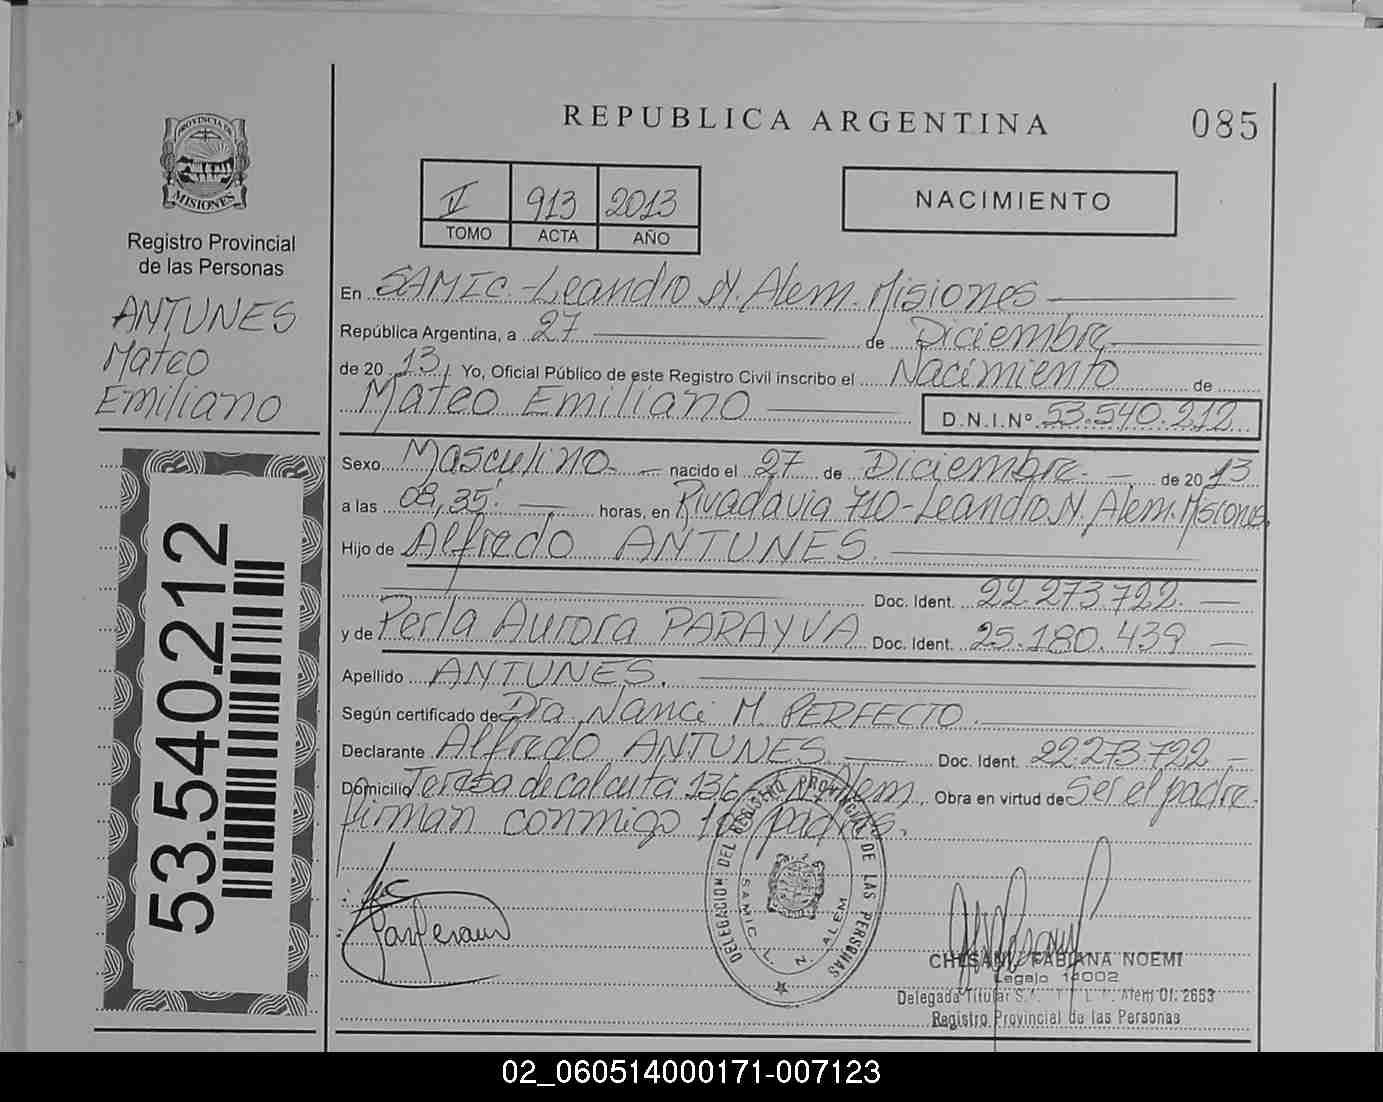 REPUBLICA ARGENTINA
085
PROVINCIA DE
MISIONES
Registro Provincial
de las Personas
ANTUNES
Mateo
Emiliano
53.540.212
V 913 2013
TOMO ACTA AÑO
NACIMIENTO
En SAMIC-Leandro N. Alem. Misiones
República Argentina, a 27 de Diciembre
de 20 13 Yo, Oficial Público de este Registro Civil inscribo el Nacimiento de
Mateo Emiliano D.N.I.Nº 53.540.212
Sexo Masculino nacido el 27 de Diciembre de 20 13
a las 08,35 horas, en Rivadavia 710-Leandro N. Alem. Misiones
Hijo de Alfredo ANTUNES.
Doc. Ident. 22.273.722.
y de Perla Aurora PARAYVA Doc. Ident. 25.180.439
Apellido ANTUNES.
Según certificado de Dra. Nanci M. PERFECTO
Declarante Alfredo ANTUNES Doc. Ident. 22.273.722
Domicilio Teresa de calcuta 136 Alem Obra en virtud de Ser el padre.
firman conmigo los padres.
DELEGACION DEL REGISTRO PROVINCIAL DE LAS PERSONAS
SAMIC L. N. ALEM
FABIANA NOEMI
Legajo 14002
Delegada Titular Alem Of. 2653
Registro Provincial de las Personas
02_060514000171-007123